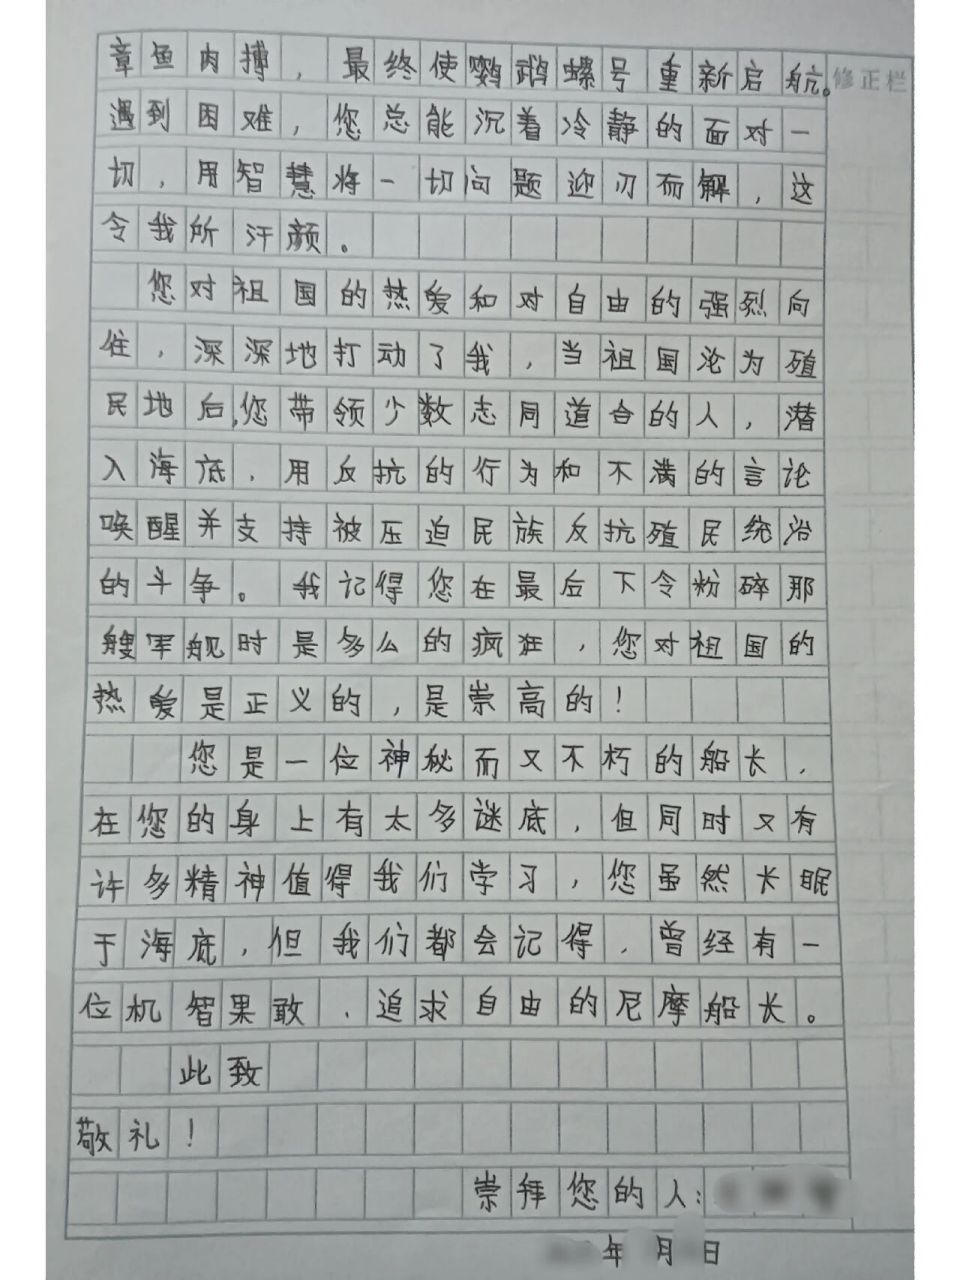 章鱼肉搏，最终使鹦鹉螺号重新启航。
修正栏
遇到困难，您总能沉着冷静的面对一
切，用智慧将一切问题迎刃而解，这
令我所汗颜。
您对祖国的热爱和对自由的强烈向
往，深深地打动了我，当祖国沦为殖
民地后，您带领少数志同道合的人，潜
入海底，用反抗的行为和不满的言论
唤醒并支持被压迫民族反抗殖民统治
的斗争。我记得您在最后下令粉碎那
艘军舰时是多么的疯狂，您对祖国的
热爱是正义的，是崇高的！
您是一位神秘而又不朽的船长，
在您的身上有太多谜底，但同时又有
许多精神值得我们学习，您虽然长眠
于海底，但我们都会记得，曾经有一
位机智果敢、追求自由的尼摩船长。
此致
敬礼！
崇拜您的人：
年 月 日